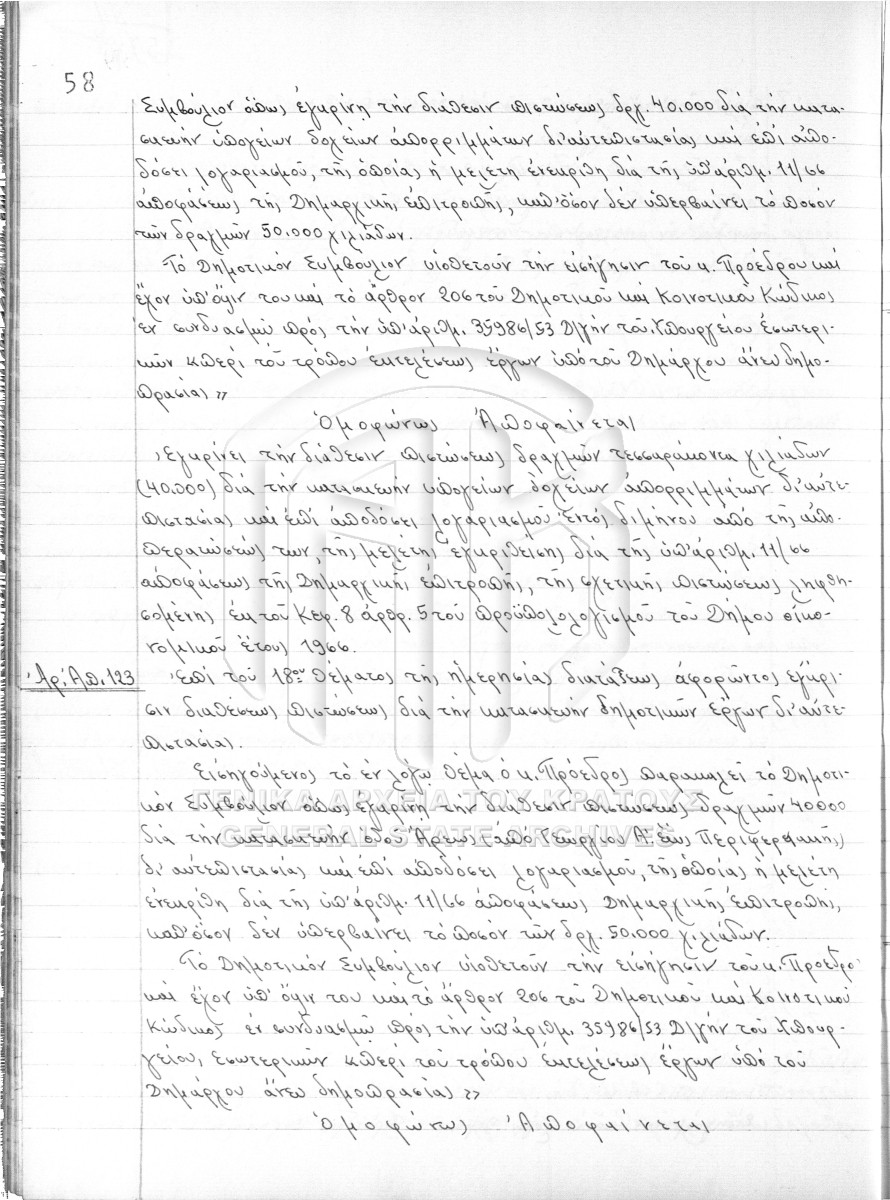 58
Συμβούλιον ὅπως ἐγκρίνῃ τὴν διάθεσιν πιστώσεως δρχ. 40.000 διὰ τὴν κατα-
σκευὴν ὑπογείων δοχείων ἀπορριμμάτων δι' αὐτεπιστασίας καὶ ἐπὶ ἀπο-
δόσει λογαριασμοῦ, τῆς ὁποίας ἡ μελέτη ἐνεκρίθη διὰ τῆς ὑπ' ἀριθμ. 11/66
ἀποφάσεως τῆς Δημαρχικῆς Ἐπιτροπῆς, καθ' ὅσον δὲν ὑπερβαίνει τὸ ποσὸν
τῶν δραχμῶν 50.000 χιλιάδων.
Τὸ Δημοτικὸν Συμβούλιον υἱοθετοῦν τὴν εἰσήγησιν τοῦ κ. Προέδρου καὶ
ἔχον ὑπ' ὄψιν του καὶ τὸ ἄρθρον 206 τοῦ Δημοτικοῦ καὶ Κοινοτικοῦ Κώδικος
ἐν συνδυασμῷ πρὸς τὴν ὑπ' ἀριθμ. 35986/53 Δ/γὴν τοῦ Ὑπουργείου Ἐσωτερι-
κῶν «περὶ τοῦ τρόπου ἐκτελέσεως ἔργων ὑπὸ τοῦ Δημάρχου ἄνευ δημο-
πρασίας»
Ὁμοφώνως Ἀποφαίνεται
Ἐγκρίνει τὴν διάθεσιν πιστώσεως δραχμῶν τεσσαράκοντα χιλιάδων
(40.000) διὰ τὴν κατασκευὴν ὑπογείων δοχείων ἀπορριμμάτων δι' αὐτε-
πιστασίας καὶ ἐπὶ ἀποδόσει λογαριασμοῦ ἐντὸς διμήνου ἀπὸ τῆς ἀπο-
περατώσεώς των, τῆς μελέτης ἐγκριθείσης διὰ τῆς ὑπ' ἀριθμ. 11/66
ἀποφάσεως τῆς Δημαρχικῆς Ἐπιτροπῆς, τῆς σχετικῆς πιστώσεως ληφθη-
σομένης ἐκ τοῦ Κεφ. 8 ἄρθρ. 5 τοῦ προϋπολολογισμοῦ τοῦ Δήμου οἰκο-
νομικοῦ ἔτους 1966.
Ἀρ. Ἀπ. 123
Ἐπὶ τοῦ 18ου θέματος τῆς ἡμερησίας διατάξεως ἀφορῶντος ἔγκρι-
σιν διαθέσεως πιστώσεως διὰ τὴν κατασκευὴν δημοτικῶν ἔργων δι' αὐτε-
πιστασίας.
Εἰσηγούμενος τὸ ἐν λόγῳ θέμα ὁ κ. Πρόεδρος παρακαλεῖ τὸ Δημοτι-
κὸν Συμβούλιον ὅπως ἐγκρίνῃ τὴν διάθεσιν πιστώσεως δραχμῶν 40000
διὰ τὴν κατασκευὴν ὁδοῦ Ἄρεως (ἀπὸ Γεωργίου Α! ἕως Περιφερειακῆς)
δι' αὐτεπιστασίας καὶ ἐπὶ ἀποδόσει λογαριασμοῦ, τῆς ὁποίας ἡ μελέτη
ἐνεκρίθη διὰ τῆς ὑπ' ἀριθμ. 11/66 ἀποφάσεως Δημαρχικῆς Ἐπιτροπῆς,
καθ' ὅσον δὲν ὑπερβαίνει τὸ ποσὸν τῶν δρχ. 50.000 χιλιάδων.
Τὸ Δημοτικὸν Συμβούλιον υἱοθετοῦν τὴν εἰσήγησιν τοῦ κ. Προέδρο
καὶ ἔχον ὑπ' ὄψιν του καὶ τὸ ἄρθρον 206 τοῦ Δημοτικοῦ καὶ Κοινοτικοῦ
Κώδικος ἐν συνδυασμῷ πρὸς τὴν ὑπ' ἀριθμ. 35986/53 Δ/γὴν τοῦ Ὑπουρ-
γείου, Ἐσωτερικῶν «περὶ τοῦ τρόπου ἐκτελέσεως ἔργων ὑπὸ τοῦ
Δημάρχου ἄνευ δημοπρασίας»
Ὁμοφώνως Ἀποφαίνεται
ΓΕΝΙΚΑ ΑΡΧΕΙΑ ΤΟΥ ΚΡΑΤΟΥΣ
GENERAL STATE ARCHIVES